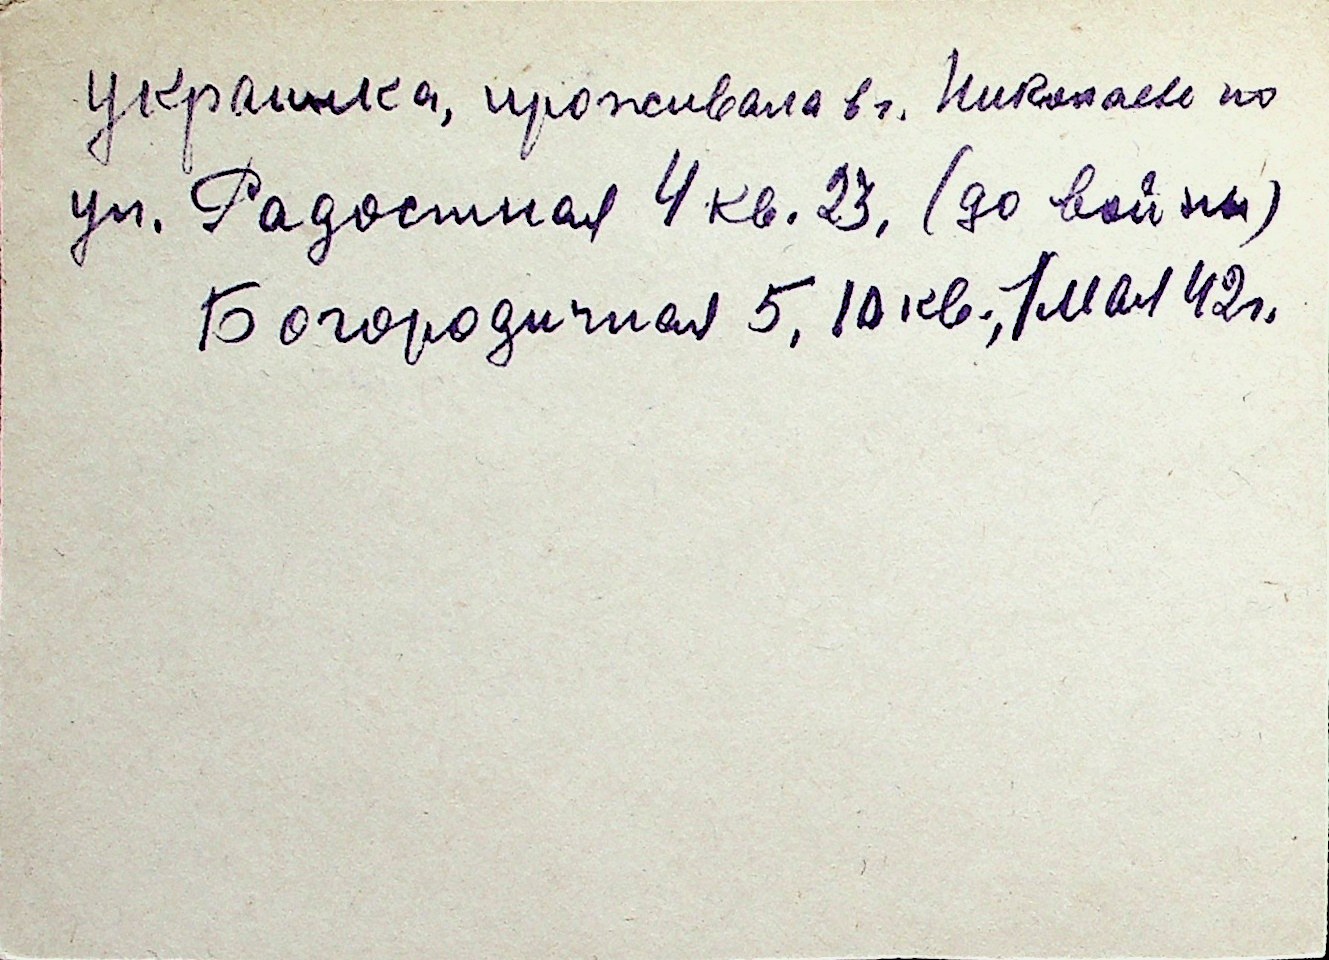 украинка, проживала в г. Николаеве по
ул. Радостная 4 кв. 23, (до войны)
Богородичная 5, 10 кв., 1 мая 42 г.